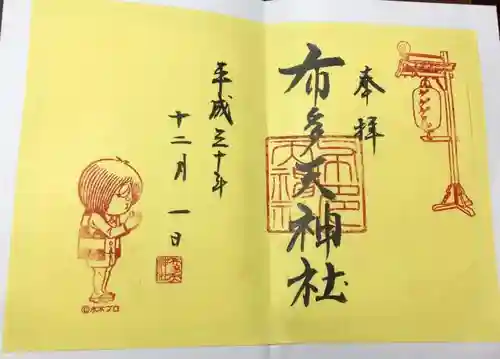 奉拝
布多天神社
平成三十年
十二月一日
©水木プロ